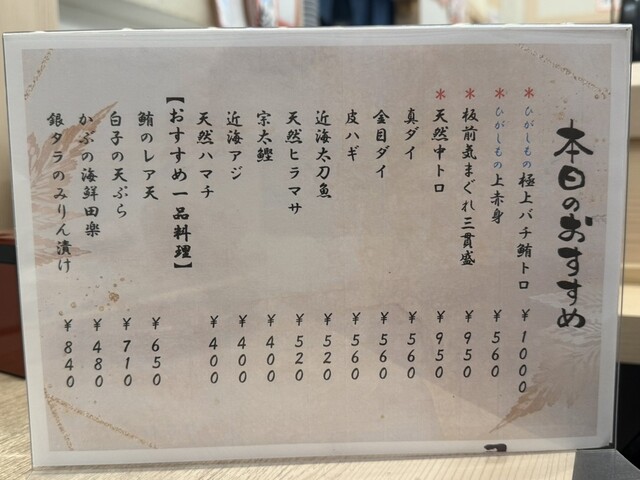 本日のおすすめ
＊ひがしもの極上バチ鮪トロ ￥1000
＊ひがしもの上赤身 ￥560
＊板前気まぐれ三貫盛 ￥950
＊天然中トロ ￥950
真ダイ ￥560
金目ダイ ￥560
皮ハギ ￥560
近海太刀魚 ￥520
天然ヒラマサ ￥520
宗太鰹 ￥400
近海アジ ￥400
天然ハマチ ￥400
【おすすめ一品料理】
鮪のレア天 ￥650
白子の天ぷら ￥710
かぶの海鮮田楽 ￥480
銀タラのみりん漬け ￥840